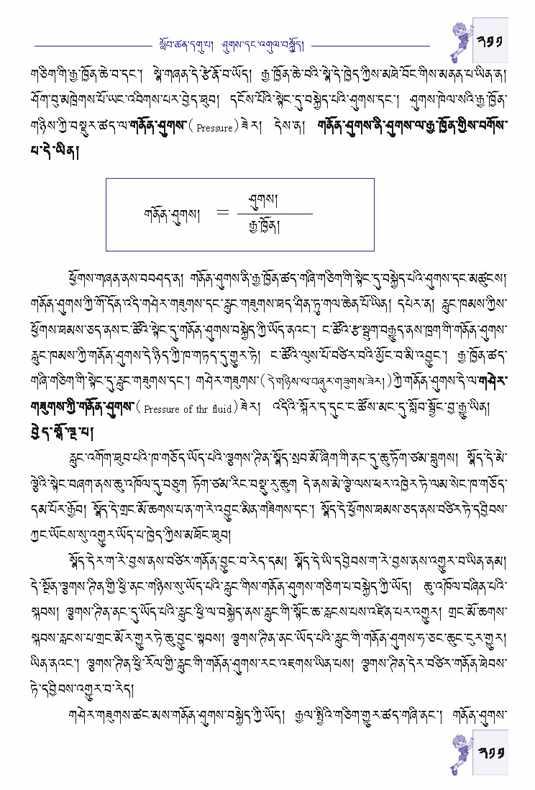 སློབ་ཚན་དགུ་པ། ཤུགས་དང་འགུལ་བསྐྱོད།
༢༡༡
གཅིག་གི་རྒྱ་ཁྱོན་ཆེ་བ་དང་། སྣེ་གཞན་དེ་རྩེ་རྣོ་བ་ཡོད། རྒྱ་ཁྱོན་ཆེ་བའི་སྣེ་དེ་ཁྱེད་ཀྱིས་མཐེ་བོང་གིས་མནན་པ་ཡིན་ན།
ཤོག་བུ་མཁྲེགས་པོ་ཡང་འབིགས་པར་བྱེད་ཐུབ། དངོས་པོའི་སྟེང་དུ་བསྐྱེད་པའི་ཤུགས་དང་། ཤུགས་ཁེལ་སའི་རྒྱ་ཁྱོན་
གཉིས་ཀྱི་བསྡུར་ཚད་ལ་གནོན་ཤུགས་( Pressure)ཟེར། དེས་ན། གནོན་ཤུགས་ནི་ཤུགས་ལ་རྒྱ་ཁྱོན་གྱིས་བགོས་
པ་དེ་ཡིན།
གནོན་ཤུགས། = ཤུགས།
རྒྱ་ཁྱོན།
ཕྱོགས་གཞན་ནས་བཤད་ན། གནོན་ཤུགས་ནི་རྒྱ་ཁྱོན་ཚད་གཞི་གཅིག་གི་སྟེང་དུ་བསྐྱེད་པའི་ཤུགས་དང་མཚུངས།
གནོན་ཤུགས་ཀྱི་གོ་དོན་འདི་གཤེར་གཟུགས་དང་རླུང་གཟུགས་ཐད་ཤིན་ཏུ་གལ་ཆེན་པོ་ཡིན། དཔེར་ན། རླུང་ཁམས་ཀྱིས་
ཕྱོགས་ཐམས་ཅད་ནས་ང་ཚོའི་སྟེང་དུ་གནོན་ཤུགས་བསྐྱེད་ཀྱི་ཡོད་ནའང་། ང་ཚོའི་རྩ་སྦུག་བརྒྱུད་ནས་ཁྲག་གི་གནོན་ཤུགས་
རླུང་ཁམས་ཀྱི་གནོན་ཤུགས་དེ་ཉིད་ཀྱི་ཁ་གཏད་དུ་གྱུར་ཏེ། ང་ཚོའི་ལུས་པོ་བཙིར་བའི་མྱོང་བ་མི་འབྱུང་། རྒྱ་ཁྱོན་ཚད་
གཞི་གཅིག་གི་སྟེང་དུ་རླུང་གཟུགས་དང་། གཤེར་གཟུགས་(དེ་གཉིས་ལ་བཞུར་གཟུགས་ཟེར།)ཀྱི་གནོན་ཤུགས་དེ་ལ་གཤེར་
གཟུགས་ཀྱི་གནོན་ཤུགས་( Pressure of thr fluid)ཟེར། འདིའི་སྐོར་ད་དུང་ང་ཚོས་མང་དུ་སློབ་སྦྱོང་བྱ་རྒྱུ་ཡིན།
བྱེད་སྒོ་ལྔ་པ།
རླུང་འགོག་ཐུབ་པའི་ཁ་གཅོད་ཡོད་པའི་ལྕགས་ཊིན་སྣོད་སྲབ་མོ་ཞིག་གི་ནང་དུ་ཆུ་ཏོག་ཙམ་བླུགས། སྣོད་དེ་མེ་
ལྕེའི་སྟེང་བཞག་ནས་ཆུ་འཁོལ་དུ་བཅུག ཏོག་ཙམ་རིང་བསྡུ་རུ་ཆུག དེ་ནས་མེ་ལྕེ་ལས་ཕར་འཁྱེར་ཏེ་ལམ་སེང་ཁ་གཅོད་
དམ་པོར་རྒྱོབ། སྣོད་དེ་གྲང་མོ་ཆགས་པ་ན་ག་རེ་འབྱུང་མིན་གཟིགས་དང་། སྣོད་དེ་ཕྱོགས་ཐམས་ཅད་ནས་བཙིར་ཏེ་དབྱིབས་
ཀྱང་ཡོངས་སུ་འགྱུར་ཡོད་པ་ཁྱེད་ཀྱིས་མཐོང་ཐུབ།
སྣོད་དེར་ག་རེ་བྱས་ནས་བཙིར་གནོན་བྱུང་བ་རེད་དམ། སྣོད་དེ་ཡི་དབྱིབས་ག་རེ་བྱས་ནས་འགྱུར་བ་ཡིན་ནམ།
དེ་སྔོན་ལྕགས་ཊིན་གྱི་ཕྱི་ནང་གཉིས་སུ་ཡོད་པའི་རླུང་གིས་གནོན་ཤུགས་གཅིག་པ་བསྐྱེད་ཀྱི་ཡོད། ཆུ་འཁོལ་བཞིན་པའི་
སྐབས། ལྕགས་ཊིན་ནང་དུ་ཡོད་པའི་རླུང་ཕྱི་ལ་བསྐྱེད་ནས་རླུང་གི་སྟོང་ཆ་རླངས་པས་འཛིན་པར་འགྱུར། གྲང་མོ་ཆགས་
སྐབས་རླངས་པ་གྲང་མོར་གྱུར་ཏེ་ཆུ་བྱུང་སྟབས། ལྕགས་ཊིན་ནང་ཡོད་པའི་རླུང་གི་གནོན་ཤུགས་ཧ་ཅང་ཆུང་ངུར་གྱུར།
ཡིན་ནའང་། ལྕགས་ཊིན་ཕྱི་རོལ་གྱི་རླུང་གི་གནོན་ཤུགས་རང་འཇགས་ཡིན་པས། ལྕགས་ཊིན་དེར་བཙིར་གནོན་ཐེབས་
ཏེ་དབྱིབས་འགྱུར་བ་རེད།
གཤེར་གཟུགས་ཚང་མས་གནོན་ཤུགས་བསྐྱེད་ཀྱི་ཡོད། རྒྱལ་སྤྱིའི་གཅིག་གྱུར་ཚད་གཞི་ནང་། གནོན་ཤུགས་
༢༡༡